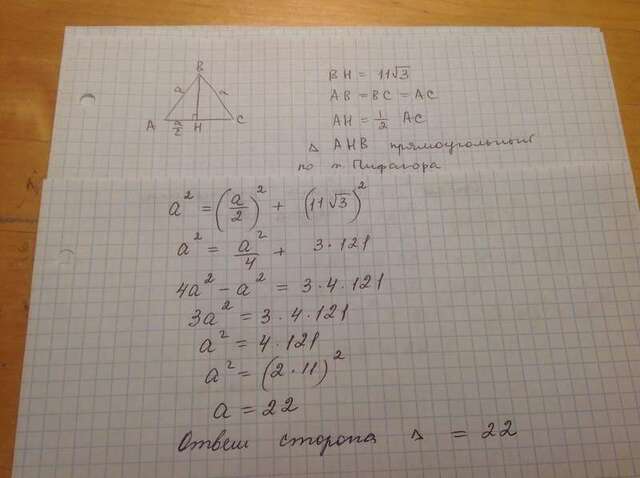 B
a a
A a/2 H C
BH = 11√3
AB = BC = AC
AH = 1/2 AC
Δ AHB прямоугольный
по т. Пифагора
a² = (a/2)² + (11√3)²
a² = a²/4 + 3·121
4a² - a² = 3·4·121
3a² = 3·4·121
a² = 4·121
a² = (2·11)²
a = 22
Ответ сторона Δ = 22